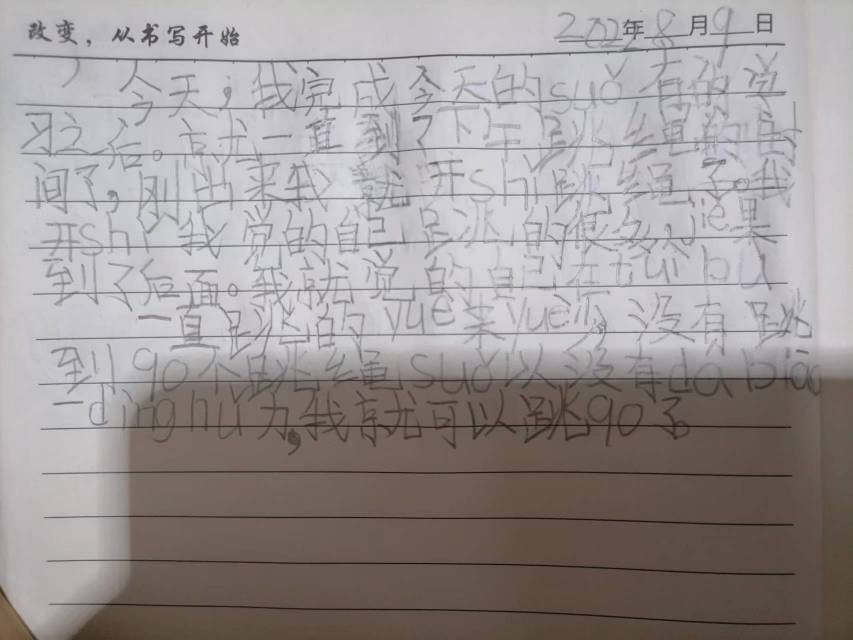 改变，从书写开始 2022年8月9日
今天，我完成今天的suǒ有的学
习之后。就一直到了下午跳绳的时
间了，刚出来我就开shǐ跳绳了。我
开shǐ我觉的自己跳的很多，jié果
到了后面。我就觉的自己在tuì bù
一直跳的yuè来yuè
没有跳
到90个跳绳suǒ以没有dá biāo
一dìng nǔ力，我就可以跳90了。